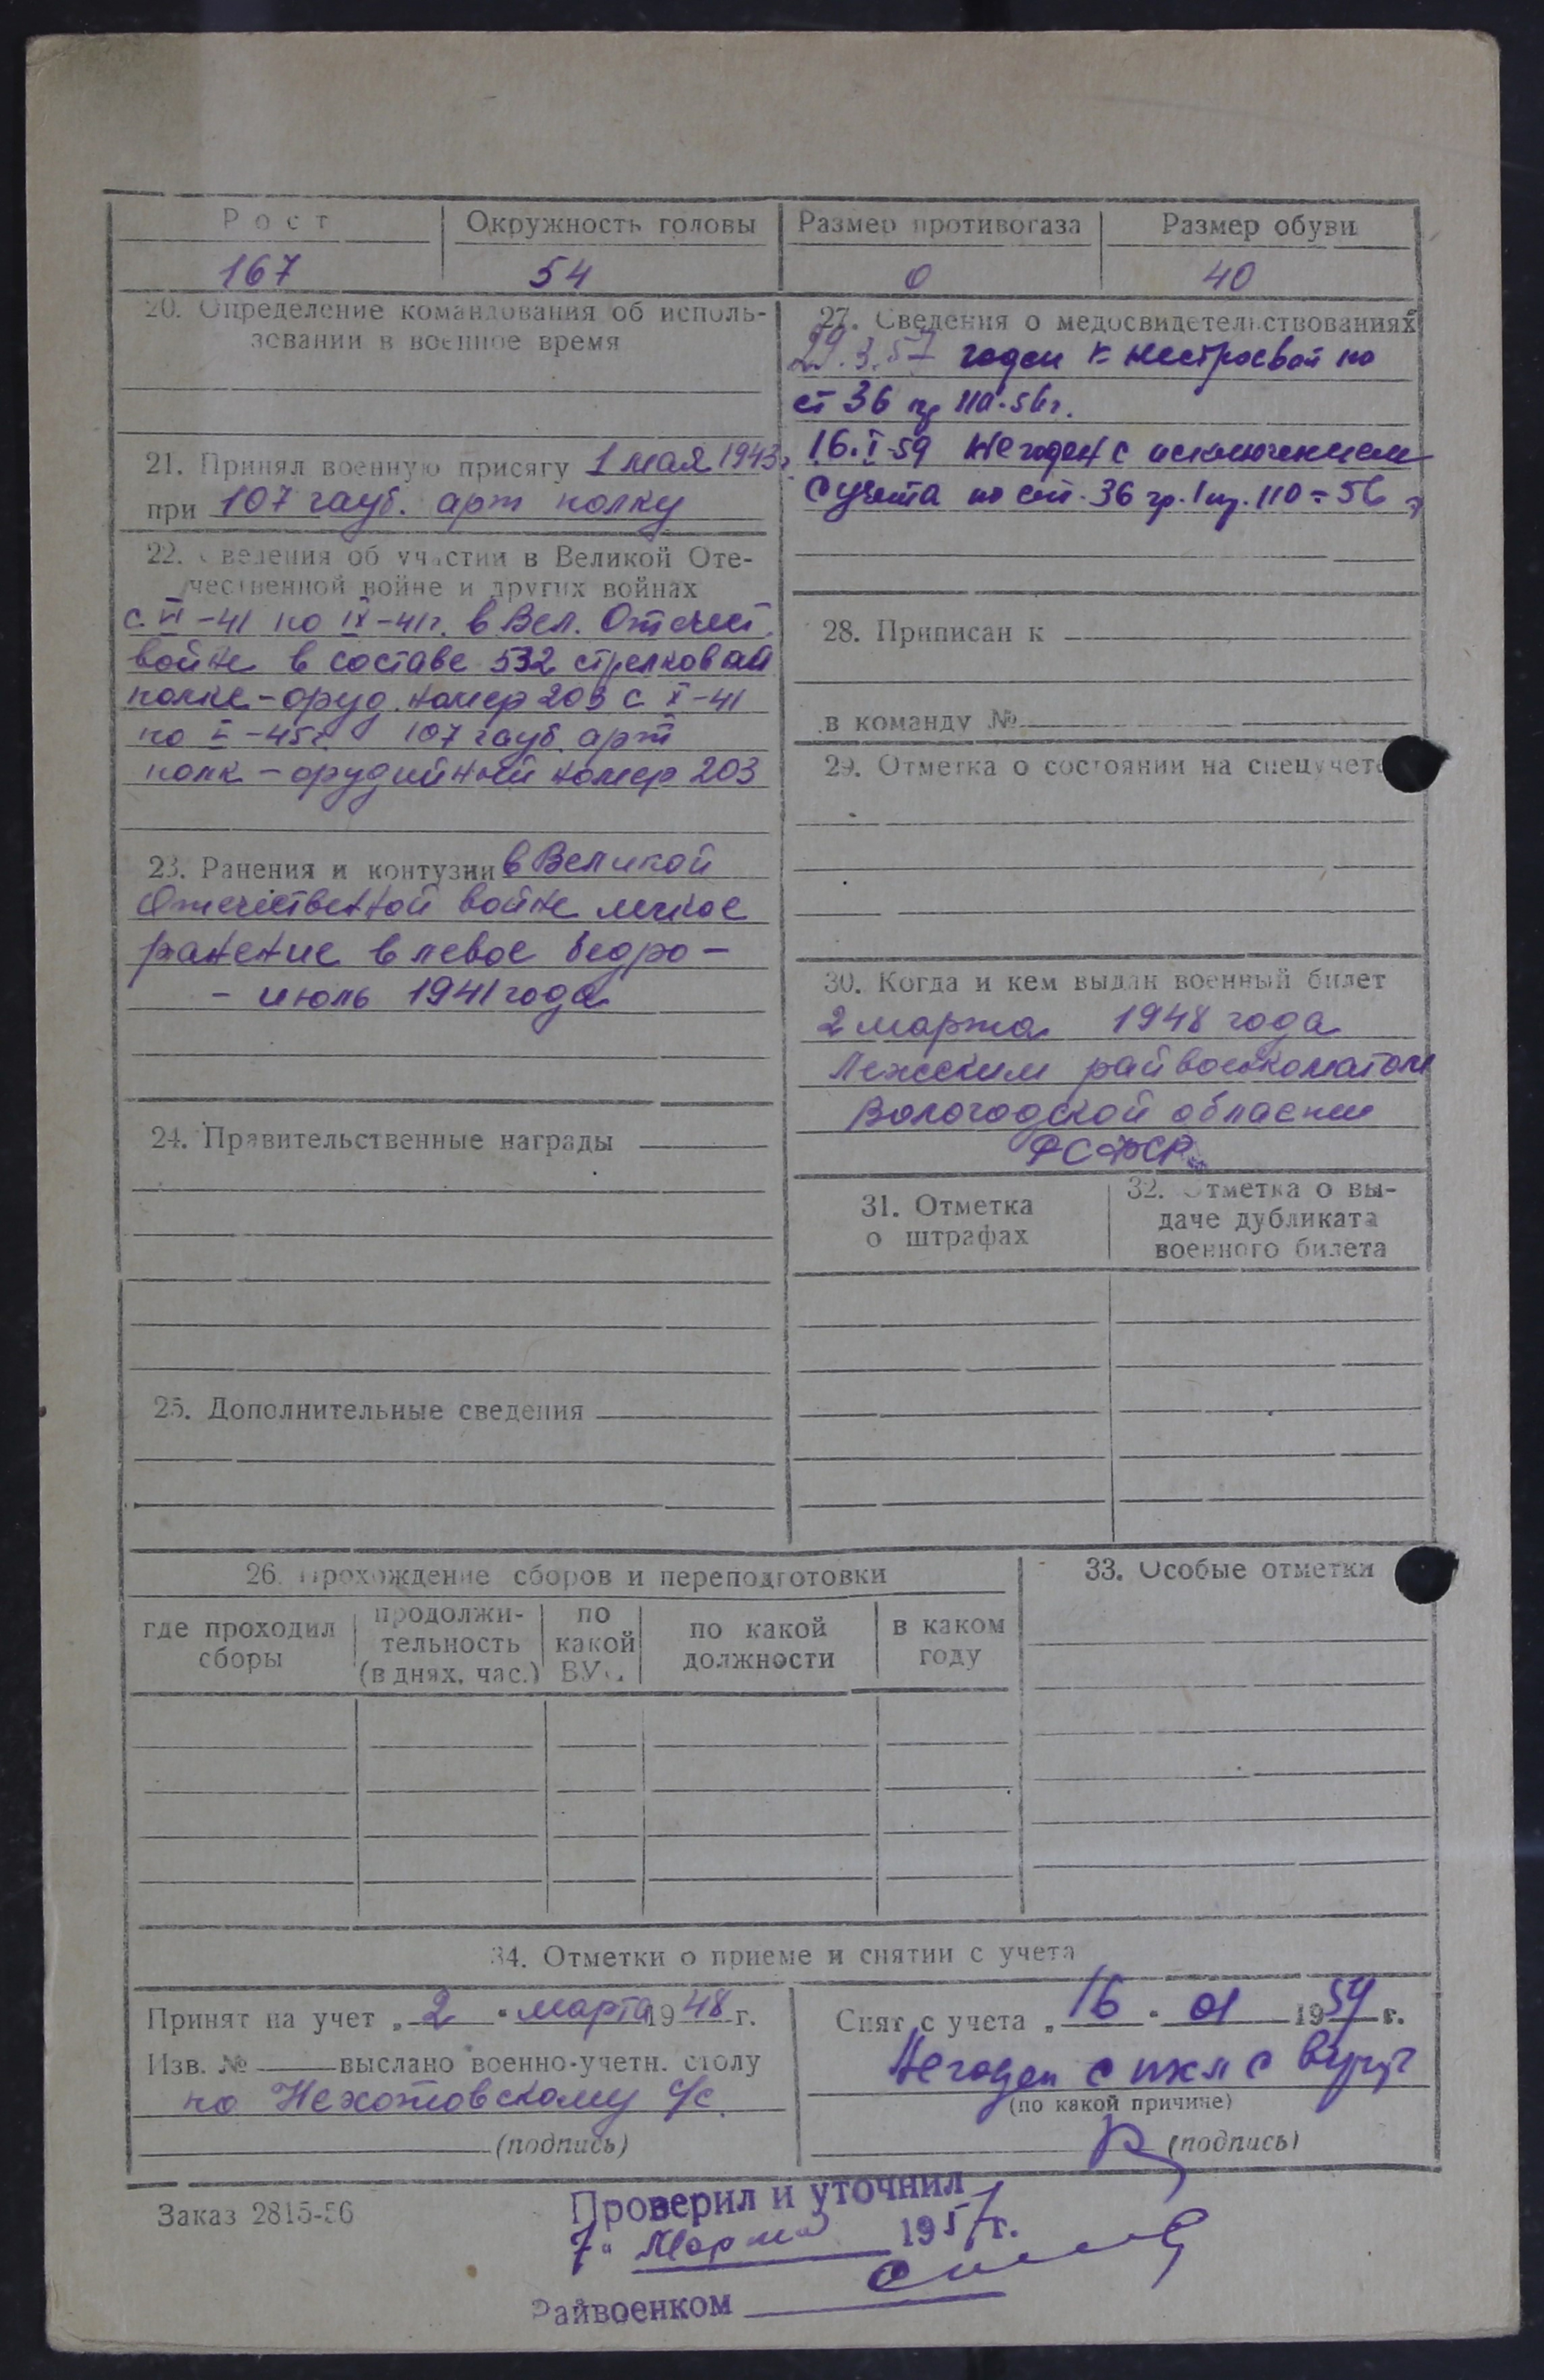 Рост Окружность головы Размер противогаза Размер обуви
167 54 0 40
20. Определение командования об исполь-
зовании в военное время
21. Принял военную присягу 1 мая 1943 г.
при 107 гауб. арт полку
22. Сведения об участии в Великой Оте-
чественной войне и других войнах
с VI-41 по IX-41г. в Вел. Отечест.
войне в составе 532 стрелковай
полке - оруд. номер 203 с X-41
по V-45г. 107 гауб. арт
полк - орудийный номер 203
23. Ранения и контузии в Великой
Отечественной войне легкое
ранение в левое бедро -
- июль 1941 года
24. Правительственные награды
25. Дополнительные сведения
27. Сведения о медосвидетельствованиях
29.3.57 годен к нестроевой по
ст 36 пр 110-56г.
16.I-59 Негоден с исключением
с учета по ст. 36 гр. I пр. 110=56 г
28. Приписан к
в команду №
29. Отметка о состоянии на спецучете
30. Когда и кем выдан военный билет
2 марта 1948 года
Лежским райвоенкоматом
Вологодской области
РСФСР
31. Отметка
о штрафах
32. Отметка о вы-
даче дубликата
военного билета
26. Прохождение сборов и переподготовки
где проходил
сборы
продолжи-
тельность
(в днях, час.)
по
какой
ВУС
по какой
должности
в каком
году
33. Особые отметки
34. Отметки о приеме и снятии с учета
Принят на учет „2" марта 1948 г.
Изв. № выслано военно-учетн. столу
по Нехотовскому с/с.
(подпись)
Снят с учета „16" 01 1959 г.
Негоден с искл с
(по какой причине)
(подпись)
Заказ 2815-56
Проверил и уточнил
7 " Марта 1957г.
Райвоенком